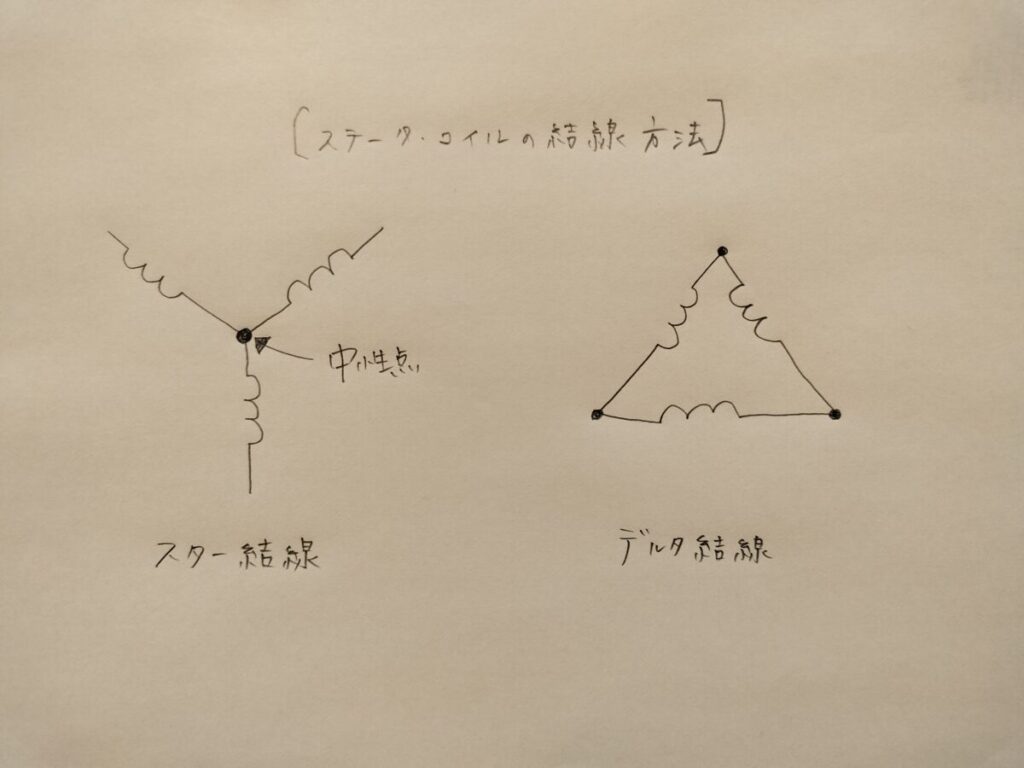 [ステータ・コイルの結線方法]
中性点
スター結線
デルタ結線